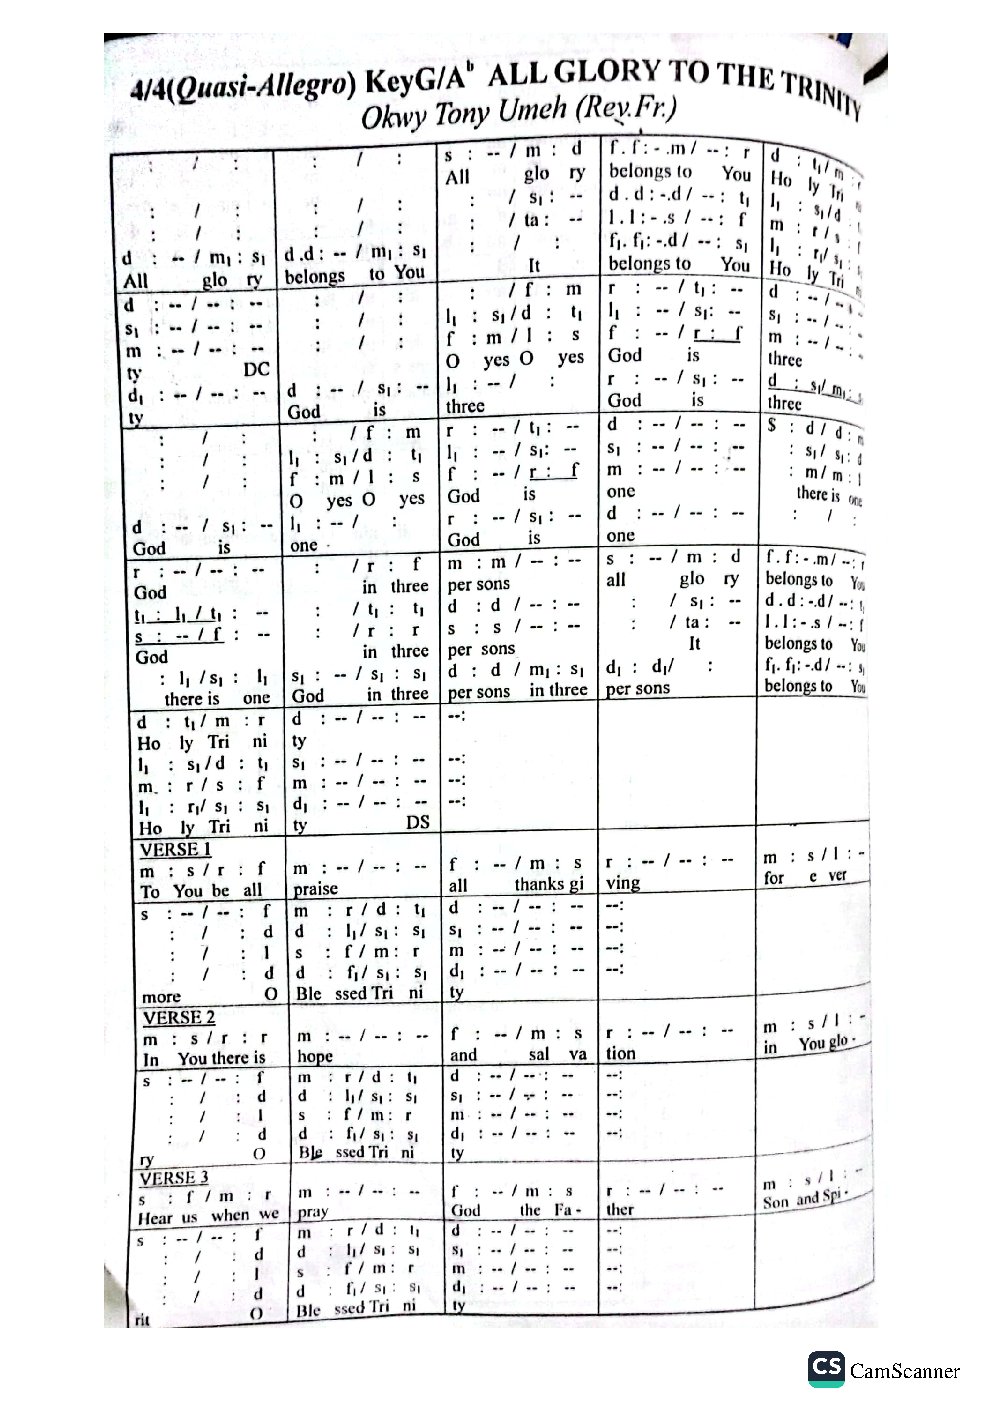 4/4(Quasi-Allegro) KeyG/Aᵇ ALL GLORY TO THE TRINITY
Okwy Tony Umeh (Rev.Fr.)
: / :
: / :
: / :
d : -- / m₁ : s₁
All glo ry
: / :
: / :
: / :
d.d : -- / m₁ : s₁
belongs to You
s : -- / m : d
All glo ry
: / s₁ : --
: / ta : --
: / :
It
f . f : - .m / -- : r
belongs to You
d . d : -.d / -- : t₁
l . l : - .s / -- : f
f₁. f₁: -.d / -- : s₁
belongs to You
d : t₁/ m :
Ho ly Tri
l₁ : s₁/d :
m : r / s :
l₁ : r₁/ s₁ :
Ho ly Tri
d : -- / -- : --
s₁ : -- / -- : --
m : -- / -- : --
ty DC
d₁ : -- / -- : --
ty
: / :
: / :
: / :
d : -- / s₁ : --
God is
: / f : m
l₁ : s₁/d : t₁
f : m / l : s
O yes O yes
l₁ : -- / :
three
r : -- / t₁ : --
l₁ : -- / s₁: --
f : -- / r : f
God is
r : -- / s₁ : --
God is
d : -- / -- :
s₁ : -- / -- :
m : -- / -- :
three
d : s₁/ m₁ : s₁
three
: / :
: / :
: / :
d : -- / s₁ : --
God is
: / f : m
l₁ : s₁/d : t₁
f : m / l : s
O yes O yes
l₁ : -- / :
one
r : -- / t₁ : --
l₁ : -- / s₁: --
f : -- / r : f
God is
r : -- / s₁ : --
God is
d : -- / -- : --
s₁ : -- / -- : --
m : -- / -- : --
one
d : -- / -- : --
one
S : d / d : m
: s₁/ s₁ : d
: m/ m : l
there is one
: / :
r : -- / -- : --
God
t₁ : l₁ / t₁ : --
s : -- / f : --
God
: l₁ /s₁ : l₁
there is one
: / r : f
in three
: / t₁ : t₁
: / r : r
in three
s₁ : -- / s₁ : s₁
God in three
m : m / -- : --
per sons
d : d / -- : --
s : s / -- : --
per sons
d : d / m₁ : s₁
per sons in three
s : -- / m : d
all glo ry
: / s₁ : --
: / ta : --
It
d₁ : d₁/ :
per sons
f . f : - .m/ -- : r
belongs to You
d . d : -.d/ -- : t₁
l . l : - .s / -- : f
belongs to You
f₁. f₁: -.d/ -- : s₁
belongs to You
d : t₁ / m : r
Ho ly Tri ni
l₁ : s₁/d : t₁
m : r / s : f
l₁ : r₁/ s₁ : s₁
Ho ly Tri ni
d : -- / -- : --
ty
s₁ : -- / -- : --
m : -- / -- : --
d₁ : -- / -- : --
ty DS
--:
--:
--:
--:
VERSE 1
m : s / r : f
To You be all
m : -- / -- : --
praise
f : -- / m : s
all thanks gi
r : -- / -- : --
ving
m : s / l : -
for e ver
s : -- / -- : f
: / : d
: / : l
: / : d
more O
m : r / d : t₁
d : l₁/ s₁ : s₁
s : f / m : r
d : f₁/ s₁ : s₁
Ble ssed Tri ni
d : -- / -- : --
s₁ : -- / -- : --
m : -- / -- : --
d₁ : -- / -- : --
ty
--:
--:
--:
--:
VERSE 2
m : s / r : r
In You there is
m : -- / -- : --
hope
f : -- / m : s
and sal va
r : -- / -- : --
tion
m : s / l : -
in You glo -
s : -- / -- : f
: / : d
: / : l
: / : d
ry O
m : r / d : t₁
d : l₁/ s₁ : s₁
s : f / m : r
d : f₁/ s₁ : s₁
Ble ssed Tri ni
d : -- / -- : --
s₁ : -- / -- : --
m : -- / -- : --
d₁ : -- / -- : --
ty
--:
--:
--:
--:
VERSE 3
s : f / m : r
Hear us when we
m : -- / -- : --
pray
f : -- / m : s
God the Fa -
r : -- / -- : --
ther
m : s / l : --
Son and Spi -
s : -- / -- : f
: / : d
: / : l
: / : d
rit O
m : r / d : t₁
d : l₁/ s₁ : s₁
s : f / m : r
d : f₁/ s₁ : s₁
Ble ssed Tri ni
d : -- / -- : --
s₁ : -- / -- : --
m : -- / -- : --
d₁ : -- / -- : --
ty
--:
--:
--:
--:
CS CamScanner